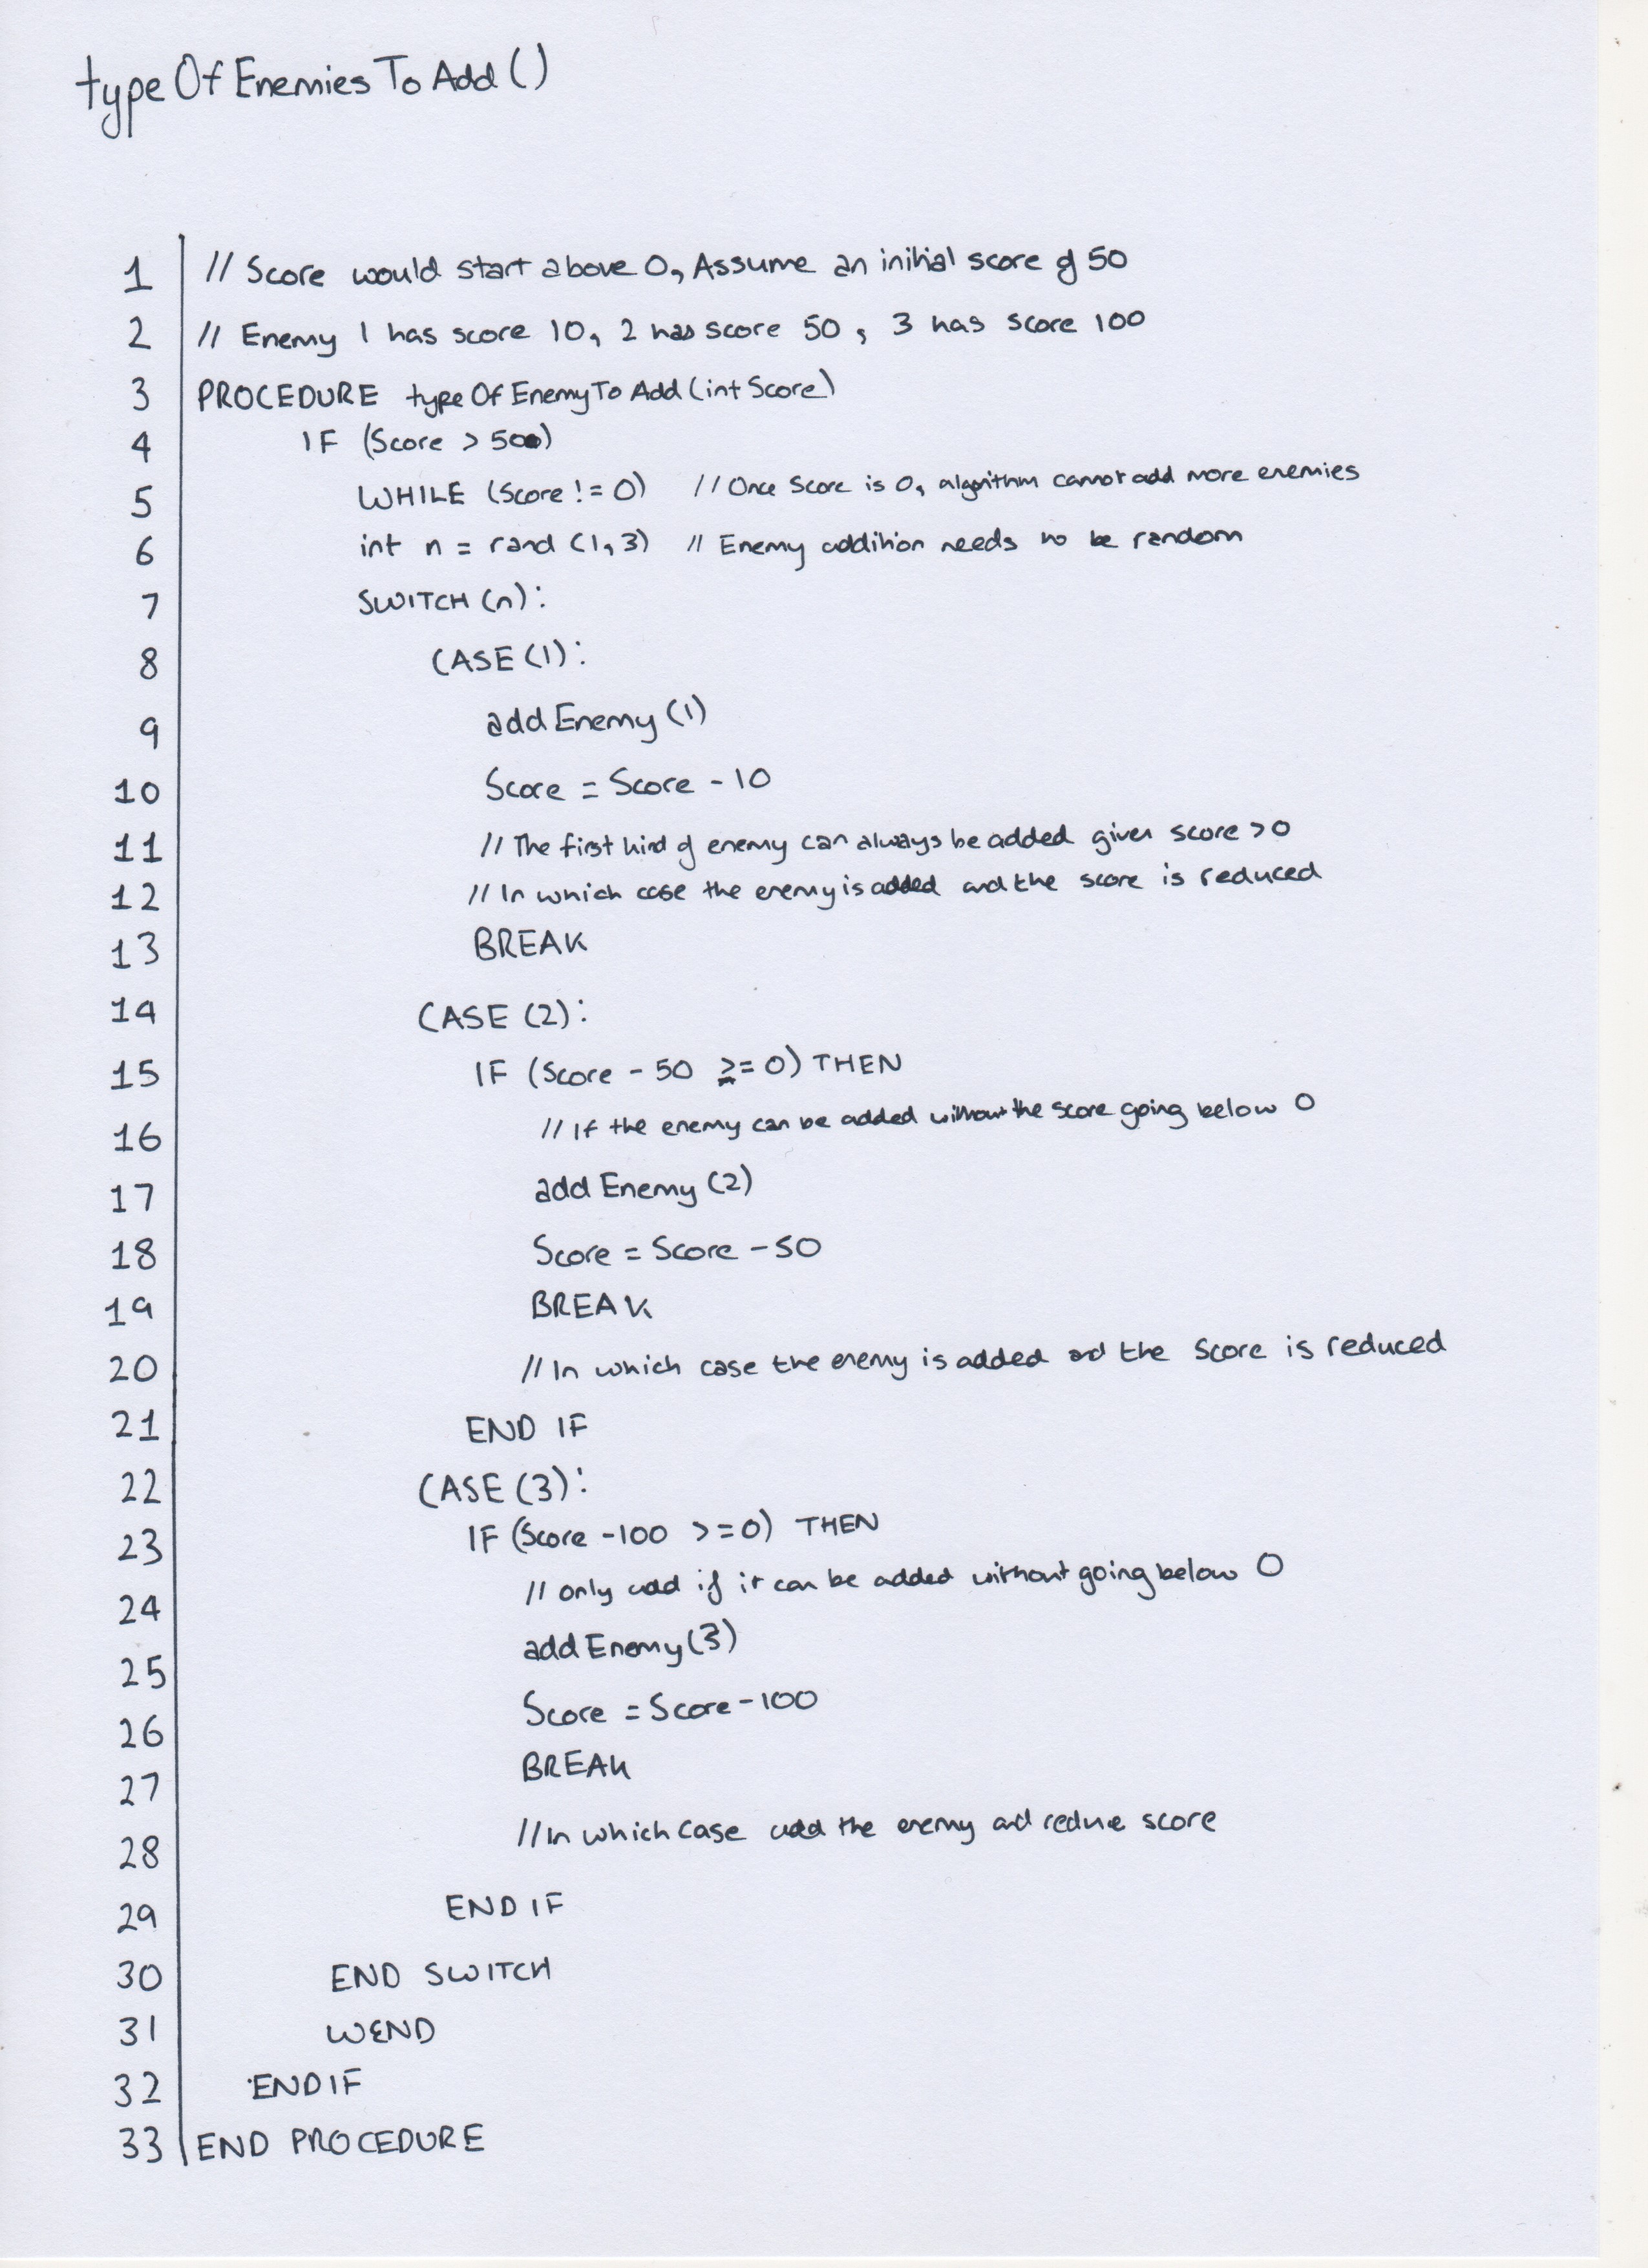 typeOfEnemiesToAdd()
1 // Score would start above 0, Assume an initial score of 50
2 // Enemy 1 has score 10, 2 has score 50, 3 has score 100
3 PROCEDURE typeOfEnemyToAdd(int Score)
4 IF (Score > 50)
5 WHILE (Score != 0) // Once Score is 0, algorithm cannot add more enemies
6 int n = rand (1,3) // Enemy addition needs to be random
7 SWITCH (n):
8 CASE (1):
9 addEnemy (1)
10 Score = Score - 10
11 // The first kind of enemy can always be added given score >0
12 // In which case the enemy is added and the score is reduced
13 BREAK
14 CASE (2):
15 IF (Score - 50 >= 0) THEN
16 // If the enemy can be added without the score going below 0
17 addEnemy (2)
18 Score = Score - 50
19 BREAK
20 // In which case the enemy is added and the score is reduced
21 END IF
22 CASE (3):
23 IF (Score -100 >=0) THEN
24 // only add if it can be added without going below 0
25 addEnemy(3)
26 Score = Score-100
27 BREAK
28 // In which case add the enemy and reduce score
29 END IF
30 END SWITCH
31 WEND
32 ENDIF
33 END PROCEDURE